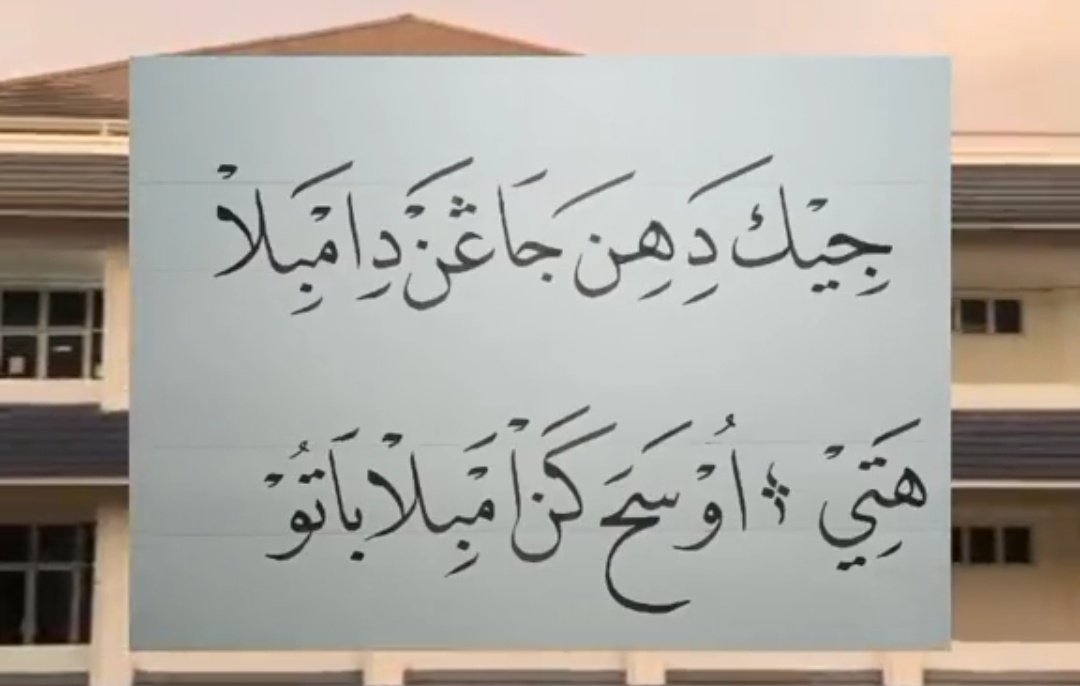 جِيْك دَهِنَ جَاڠَنْ دِاَمْبِلاْ
هَتِيْ ۲ اُوْسَحَ كَنْ اَمْبِلاْ بَاتُوْ